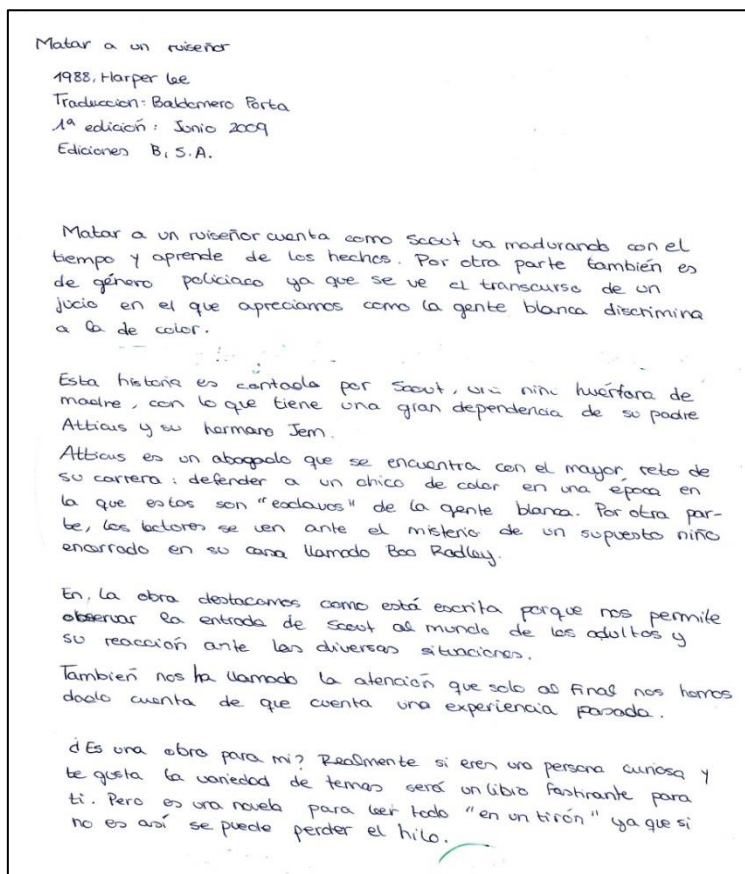 Matar a un ruiseñor
1988, Harper Lee
Traduccion: Baldomero Porta
1ª edición: Junio 2009
Ediciones B, S.A.
Matar a un ruiseñor cuenta como Scout va madurando con el
tiempo y aprende de los hechos. Por otra parte también es
de género policiaco ya que se ve el transcurso de un
jucio en el que apreciamos como la gente blanca discrimina
a la de color.
Esta historia es contada por Scout, una niña huérfana de
madre, con lo que tiene una gran dependencia de su padre
Atticus y su hermano Jem.
Atticus es un abogado que se encuentra con el mayor reto de
su carrera: defender a un chico de color en una época en
la que estos son "esclavos" de la gente blanca. Por otra par-
te, los lectores se ven ante el misterio de un supuesto niño
encerrado en su casa llamado Boo Radley.
En, la obra destacamos como está escrita porque nos permite
observar la entrada de Scout al mundo de los adultos y
su reacción ante las diversas situaciones.
También nos ha llamado la atención que solo al final nos hemos
dado cuenta de que cuenta una experiencia pasada.
¿Es una obra para mi? Realmente si eres una persona curiosa y
te gusta la variedad de temas será un libro fastinante para
ti. Pero es una novela para leer todo "en un tirón" ya que si
no es así se puede perder el hilo.